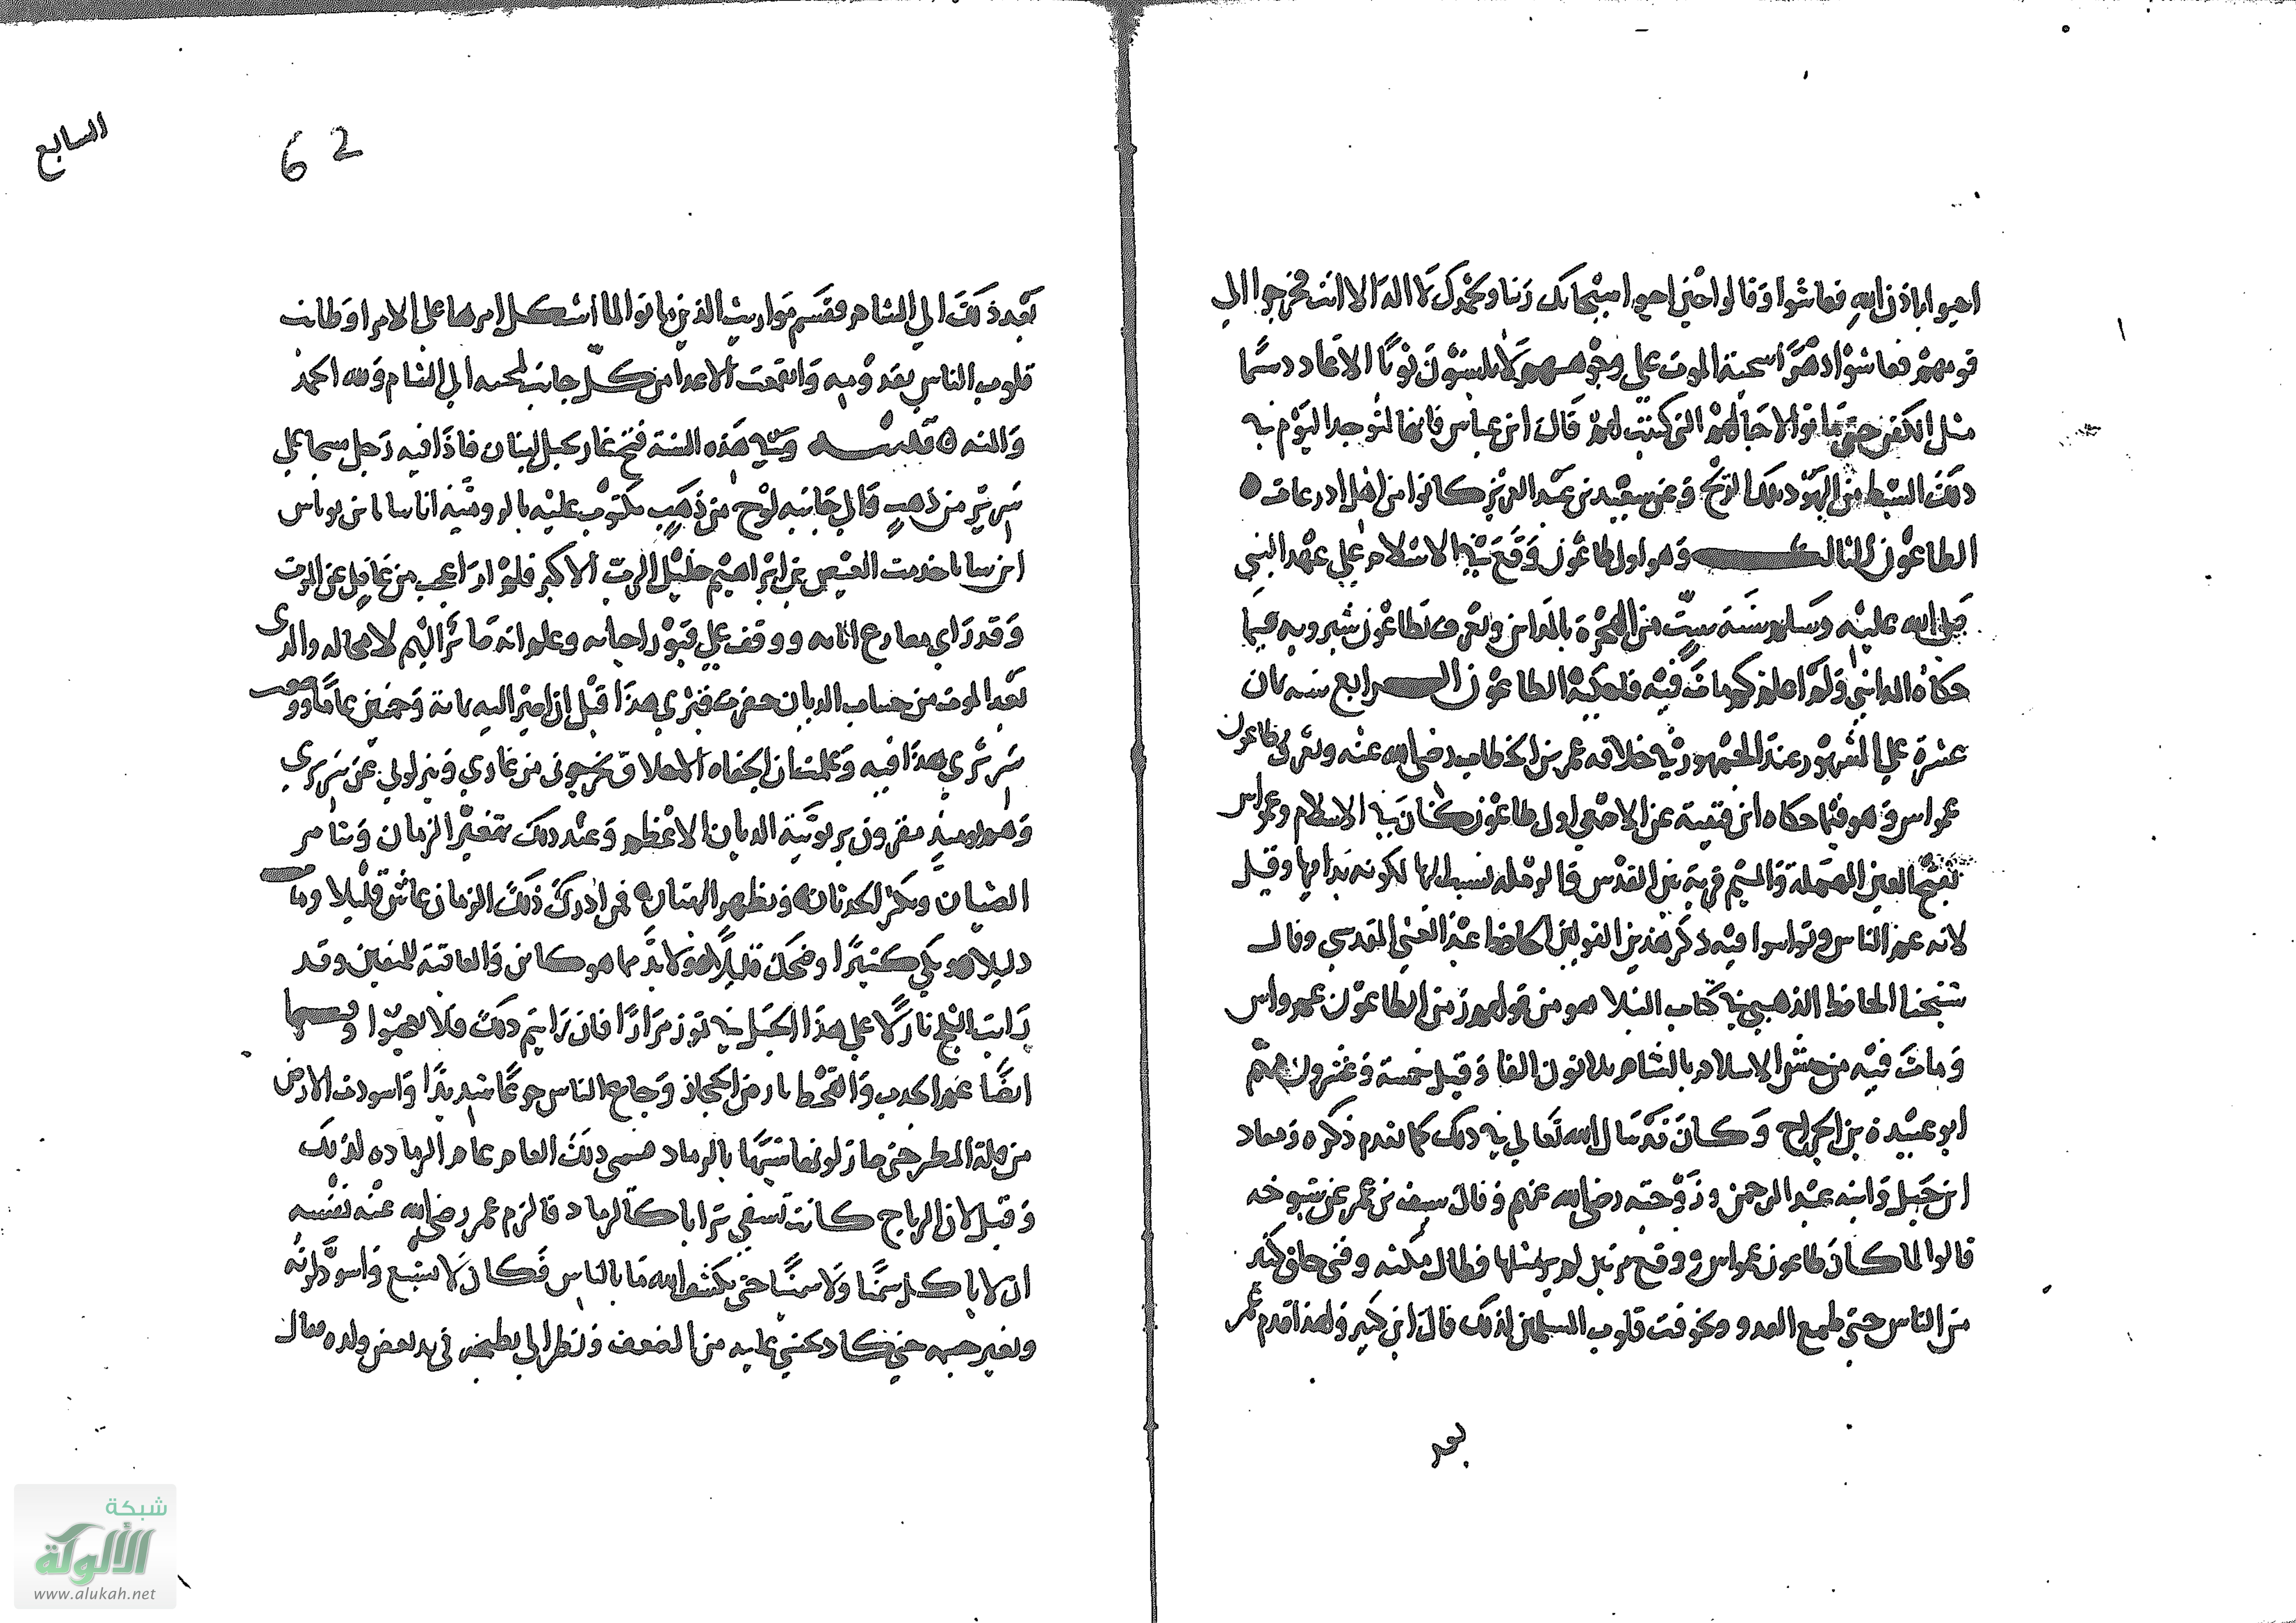 احيوا باذن الله فعاشوا وقالوا حين احيوا سبحانك ربنا وبحمدك لا اله الا انت فخرجوا الى
قومهم فعاشوا دهرا سحنة الموت على وجوههم لا يلبسون ثوبا الا عاد دسما
مثل الكفن حتى ماتوا لاجالهم التي كتبت لهم قال ابن عباس فانها لتوجد اليوم في
ذلك السبط من اليهود تلك الريح وعن سعيد بن عبد العزيز كانوا من اهل اذرعات ه
الطاعون الثالث وهو اول طاعون وقع في الاسلام على عهد النبي
صلى الله عليه وسلم سنة ست من الهجرة بالمداين ويعرف بطاعون شيرويه فيما
حكاه المدايني ولم اعلم كم مات فيه فلم يحكه الطاعون الرابع سنة ثمان
عشرة على المشهور عند الجمهور في خلافة عمر بن الخطاب رضي الله عنه ويعرف بطاعون
عمواس وهو فيما حكاه ابن قتيبة عن الاصمعي اول طاعون كان في الاسلام وعمواس
بفتح العين المهملة والميم قرية بين القدس والرملة نسب لها لكونه بدا بها وقيل
لانه عم الناس وتواسوا فيه ذكر هذين القولين الحافظ عبد الغني المقدسي وقال
شيخنا الحافظ الذهبي في كتاب النبلا هو من قولهم زمن الطاعون عم وآس
ومات فيه من جيش الاسلام بالشام ثلاثون الفا وقيل خمسة وعشرون منهم
ابو عبيدة بن الجراح وكان قد سال الله تعالى في ذلك كما تقدم ذكره ومعاذ
ابن جبل وابنه عبد الرحمن وزوجته رضي الله عنهم وقال سيف بن عمر عن شيوخه
قالوا لما كان طاعون عمواس وقع مرتين لم ير مثلها فطال مكثه وفني خلق كثير
من الناس حتى طمع العدو وتخوفت قلوب المسلمين لذلك قال ابن كثير ولهذا قدم عمر
بعد
السابع
62
بعد ذلك الى الشام فقسم مواريث الذين ماتوا لما اشكل امرها على الامرا وطابت
قلوب الناس بقدومه وانقمعت الاعدا من كل جانب لمجيه الى الشام ولله الحمد
والمنه ه قلت وفي هذه السنة فتح غار بجبل لبنان فاذا فيه رجل مسجا على
سرير من ذهب والى جانبه لوح من ذهب مكتوب عليه بالرومية انا سابا بن يوناس
ابن سابا خدمت العيص بن ابراهيم خليل الرب الاكبر فلم ار اعجب من غافل عن الموت
وقد راى مصارع ابائه ووقف على قبور احبابه وعلم انه صائر اليهم لا محالة والذي
بعد الموت من حساب الديان حفرت قبري هذا قبل ان اصير اليه بمائة وخمسين عاما ووضعت
سريري هذا فيه وعلمت ان الجفاه الاجلاف يخرجوني من غاري وينزلوني عن سريري
وهم يومئذ مقرون بربوبية الديان الاعظم وعند ذلك يتغير الزمان ويتامر
الصبيان ويكثر الحدثان ويظهر البهتان فمن ادرك ذلك الزمان عاش قليلا ومات
ذليلا هو يبكي كثيرا وضحك قليلا ولا بد مما هو كائن والعاقبة للمتقين وقد
رايت الثلج نازلا على هذا الجبل في تموز مرارا فان رايتم ذلك فلا تعجبوا وفيها
ايضا عم الجدب والقحط بارض الحجاز وجاع الناس جوعا شديدا واسودت الارض
من قلة المطر حتى صار لونها شبيها بالرماد فسمى ذلك العام عام الرمادة لذلك
وقيل لان الرياح كانت تسفي ترابا كالرماد فالزم عمر رضي الله عنه نفسه
ان لا ياكل سمنا ولا سمينا حتى يكشف الله ما بالناس فكان لا يشبع واسود لونه
وتغير جسمه حتى كاد يخشى عليه من الضعف ونظر الى بطيخة في يد بعض ولده فقال
شبكة
الألوكة
www.alukah.net